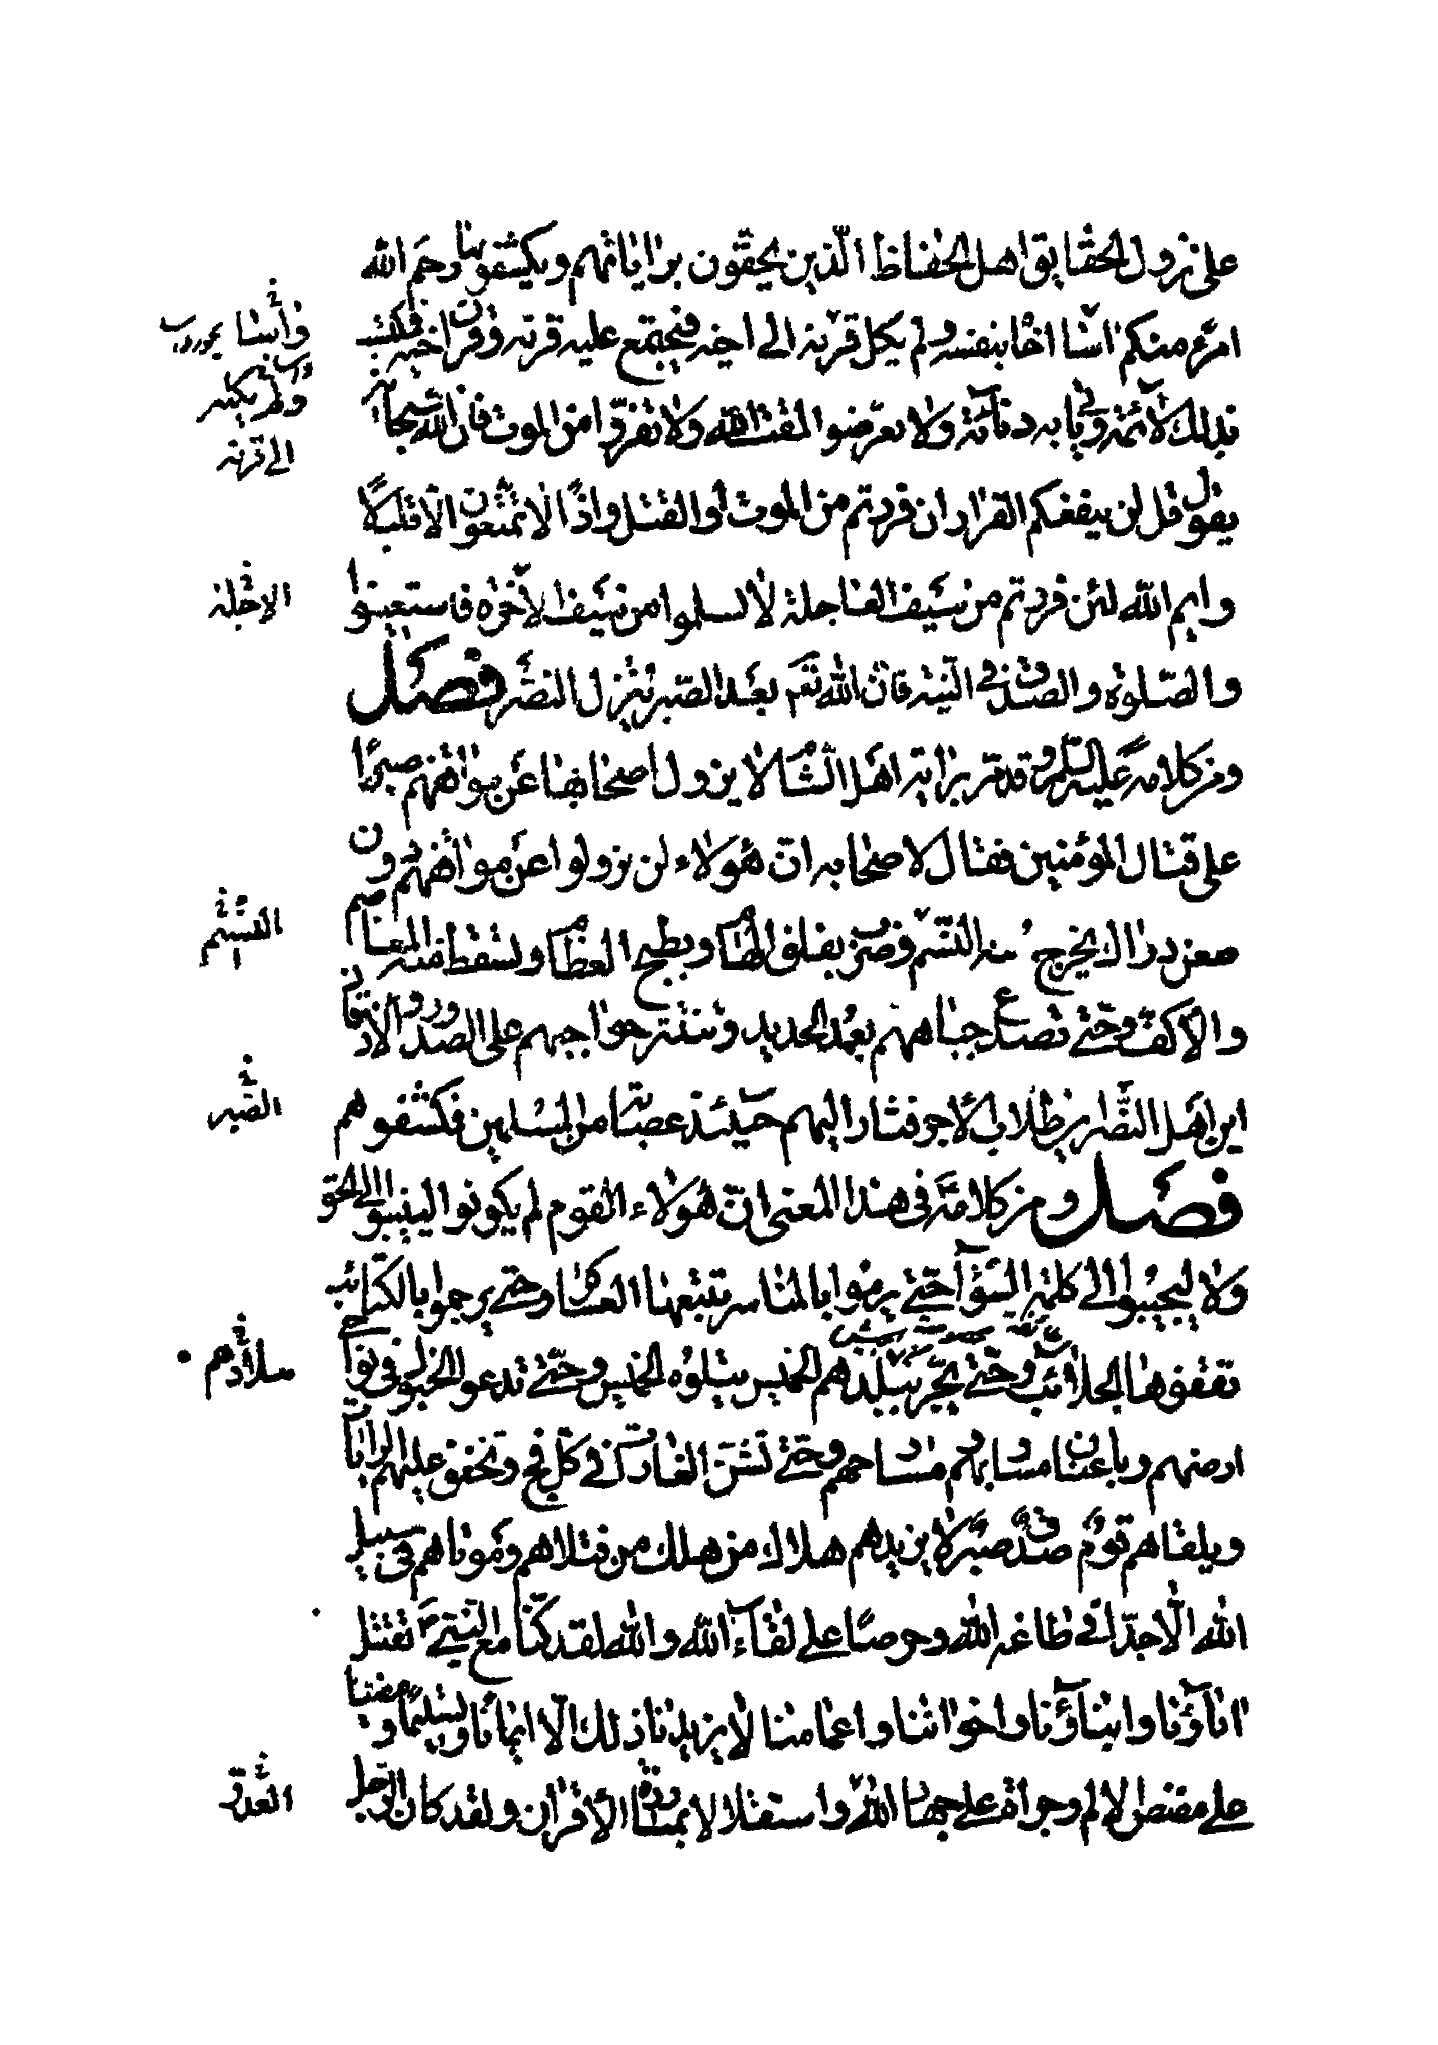 على نزول الحقايق اهل الحفاظ الذين يحقون براياتهم ويكشفونها رحم الله
امرء منكم اسا اخاه بنفسه ولم يكل قرنه الى اخيه فيجتمع عليه قرنه وقرن اخيه فيكتسب
بذلك لائمة وياتي به دناءة ولا تعرضوا لمقت الله ولا تفروا من الموت فان الله سبحانه
يقول قل لن ينفعكم الفرار ان فررتم من الموت او القتل واذا لا تمتعون الا قليلا
وايم الله لئن فررتم من سيف العاجلة لا تسلموا من سيف الاخرة فاستعينوا
والصلوة والصدق في النية فان الله تعم بعد الصبر ينزل النصر فصل
ومن كلامه عليه السلم وقد مر براية اهل الشام لا يزول اصحابها عن مواقفهم صبرا
على قتال المؤمنين فقال لاصحابه ان هؤلاء لن يزولوا عن مواقفهم دون
طعن دراك يخرج منه النسم وضرب يفلق الهام ويطيح العظام وتسقط منه المعاصم
والاكف وحتى تصدع جباههم بعمد الحديد وتنتثر حواجبهم على الصدور والاذقان
اين اهل النصر اين طلاب الاجر فثار اليهم حينئذ عصابة من المسلمين فكشفوهم
فصل ومن كلامه في هذا المعنى ان هؤلاء القوم لم يكونوا لينيبوا الى الحق
ولا ليجيبوا الى كلمة السواء حتى يرموا بالمناسر تتبعها العساكر وحتى يرجموا بالكتائب
تقفوها الجلائب وحتى يجر ببلدهم الخميس يتلوه الخميس وحتى تدعو الخيول في نواحي
ارضهم وباعنان مساربهم ومسارحهم وحتى تشن الغارات في كل فج وتخفق عليهم الرايات
ويلقاهم قوم صدق صبر لا يزيدهم هلاك من هلك من قتلاهم وموتاهم في سبيل
الله الا جدا في طاعة الله وحرصا على لقاء الله والله لقد كنا مع النبي نقتل
اباؤنا وابناؤنا واخواننا واعمامنا لا يزيدنا ذلك الا ايمانا وتسليما ومضيا
على مضض الالم وجراة على جهاد الله واستقلالا بمبارزة الاقران ولقد كان الرجل
واسا
ولم يكل
الى قرنه
الاجلة
النسم
الصبر
بلادهم
العدو